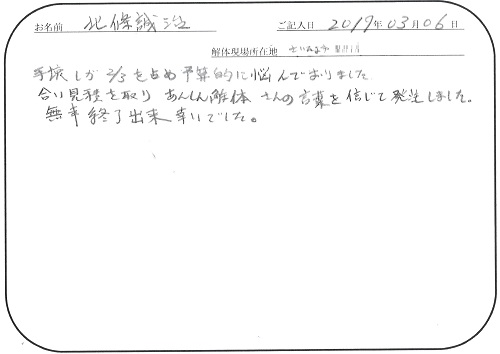 お名前 北條誠治 ご記入日 2019年03月06日
解体現場所在地 さいたま市
手壊しが2/3を占め予算的に悩んでおりました
合い見積を取り あんしん解体さんの言葉を信じて発注しました。
無事終了出来幸いでした。